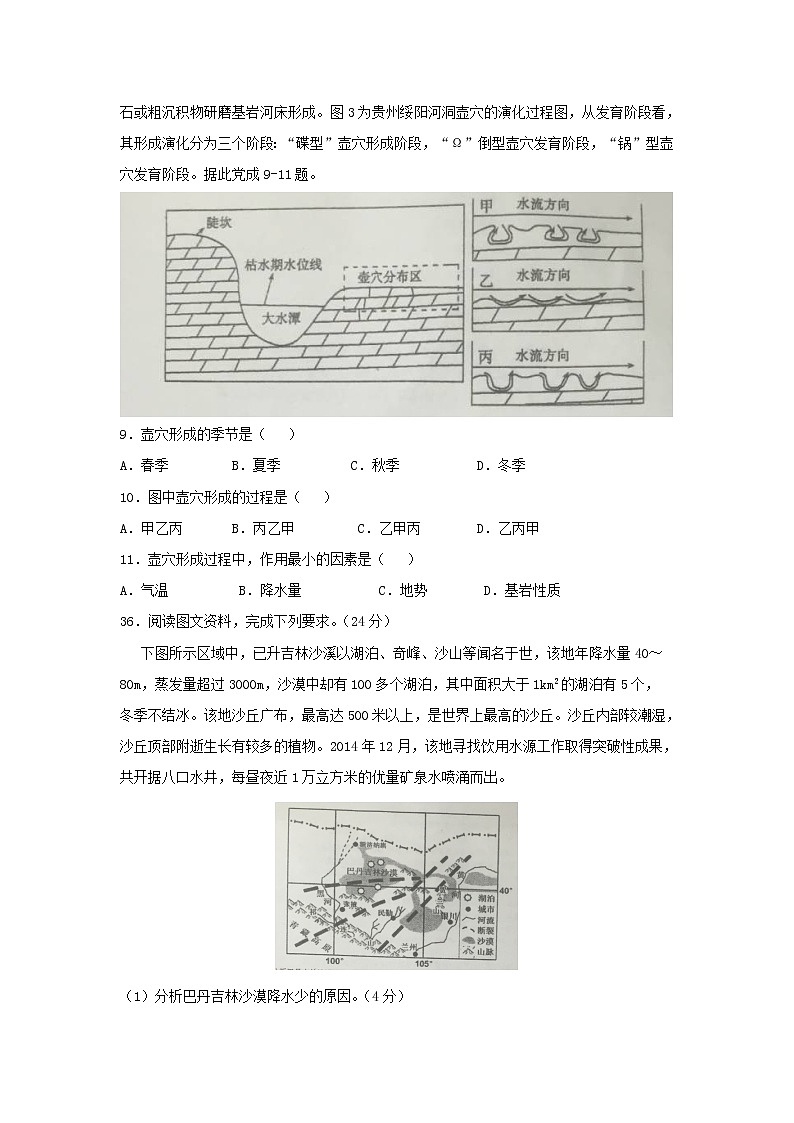 石或粗沉积物研磨基岩河床形成。图3为贵州绥阳河洞壶穴的演化过程图，从发育阶段看，
其形成演化分为三个阶段：“碟型”壶穴形成阶段，“Ω”倒型壶穴发育阶段，“锅”型壶
穴发育阶段。据此党成9-11题。
陡坎
枯水期水位线
大水潭
壶穴分布区
甲 水流方向
乙 水流方向
丙 水流方向
9．壶穴形成的季节是（ ）
A．春季 B．夏季 C．秋季 D．冬季
10．图中壶穴形成的过程是（ ）
A．甲乙丙 B．丙乙甲 C．乙甲丙 D．乙丙甲
11．壶穴形成过程中，作用最小的因素是（ ）
A．气温 B．降水量 C．地势 D．基岩性质
36．阅读图文资料，完成下列要求。（24分）
下图所示区域中，已升吉林沙溪以湖泊、奇峰、沙山等闻名于世，该地年降水量40～
80m，蒸发量超过3000m，沙漠中却有100多个湖泊，其中面积大于1km²的湖泊有5个，
冬季不结冰。该地沙丘广布，最高达500米以上，是世界上最高的沙丘。沙丘内部较潮湿，
沙丘顶部附逝生长有较多的植物。2014年12月，该地寻找饮用水源工作取得突破性成果，
共开据八口水井，每昼夜近1万立方米的优量矿泉水喷涌而出。
额济纳旗
巴丹吉林沙漠
黑河
张掖
民勤
祁连山
青藏高原
贺兰山
银川
黄河
兰州
40°
100°
105°
湖泊
城市
河流
断裂
沙漠
山脉
（1）分析巴丹吉林沙漠降水少的原因。（4分）